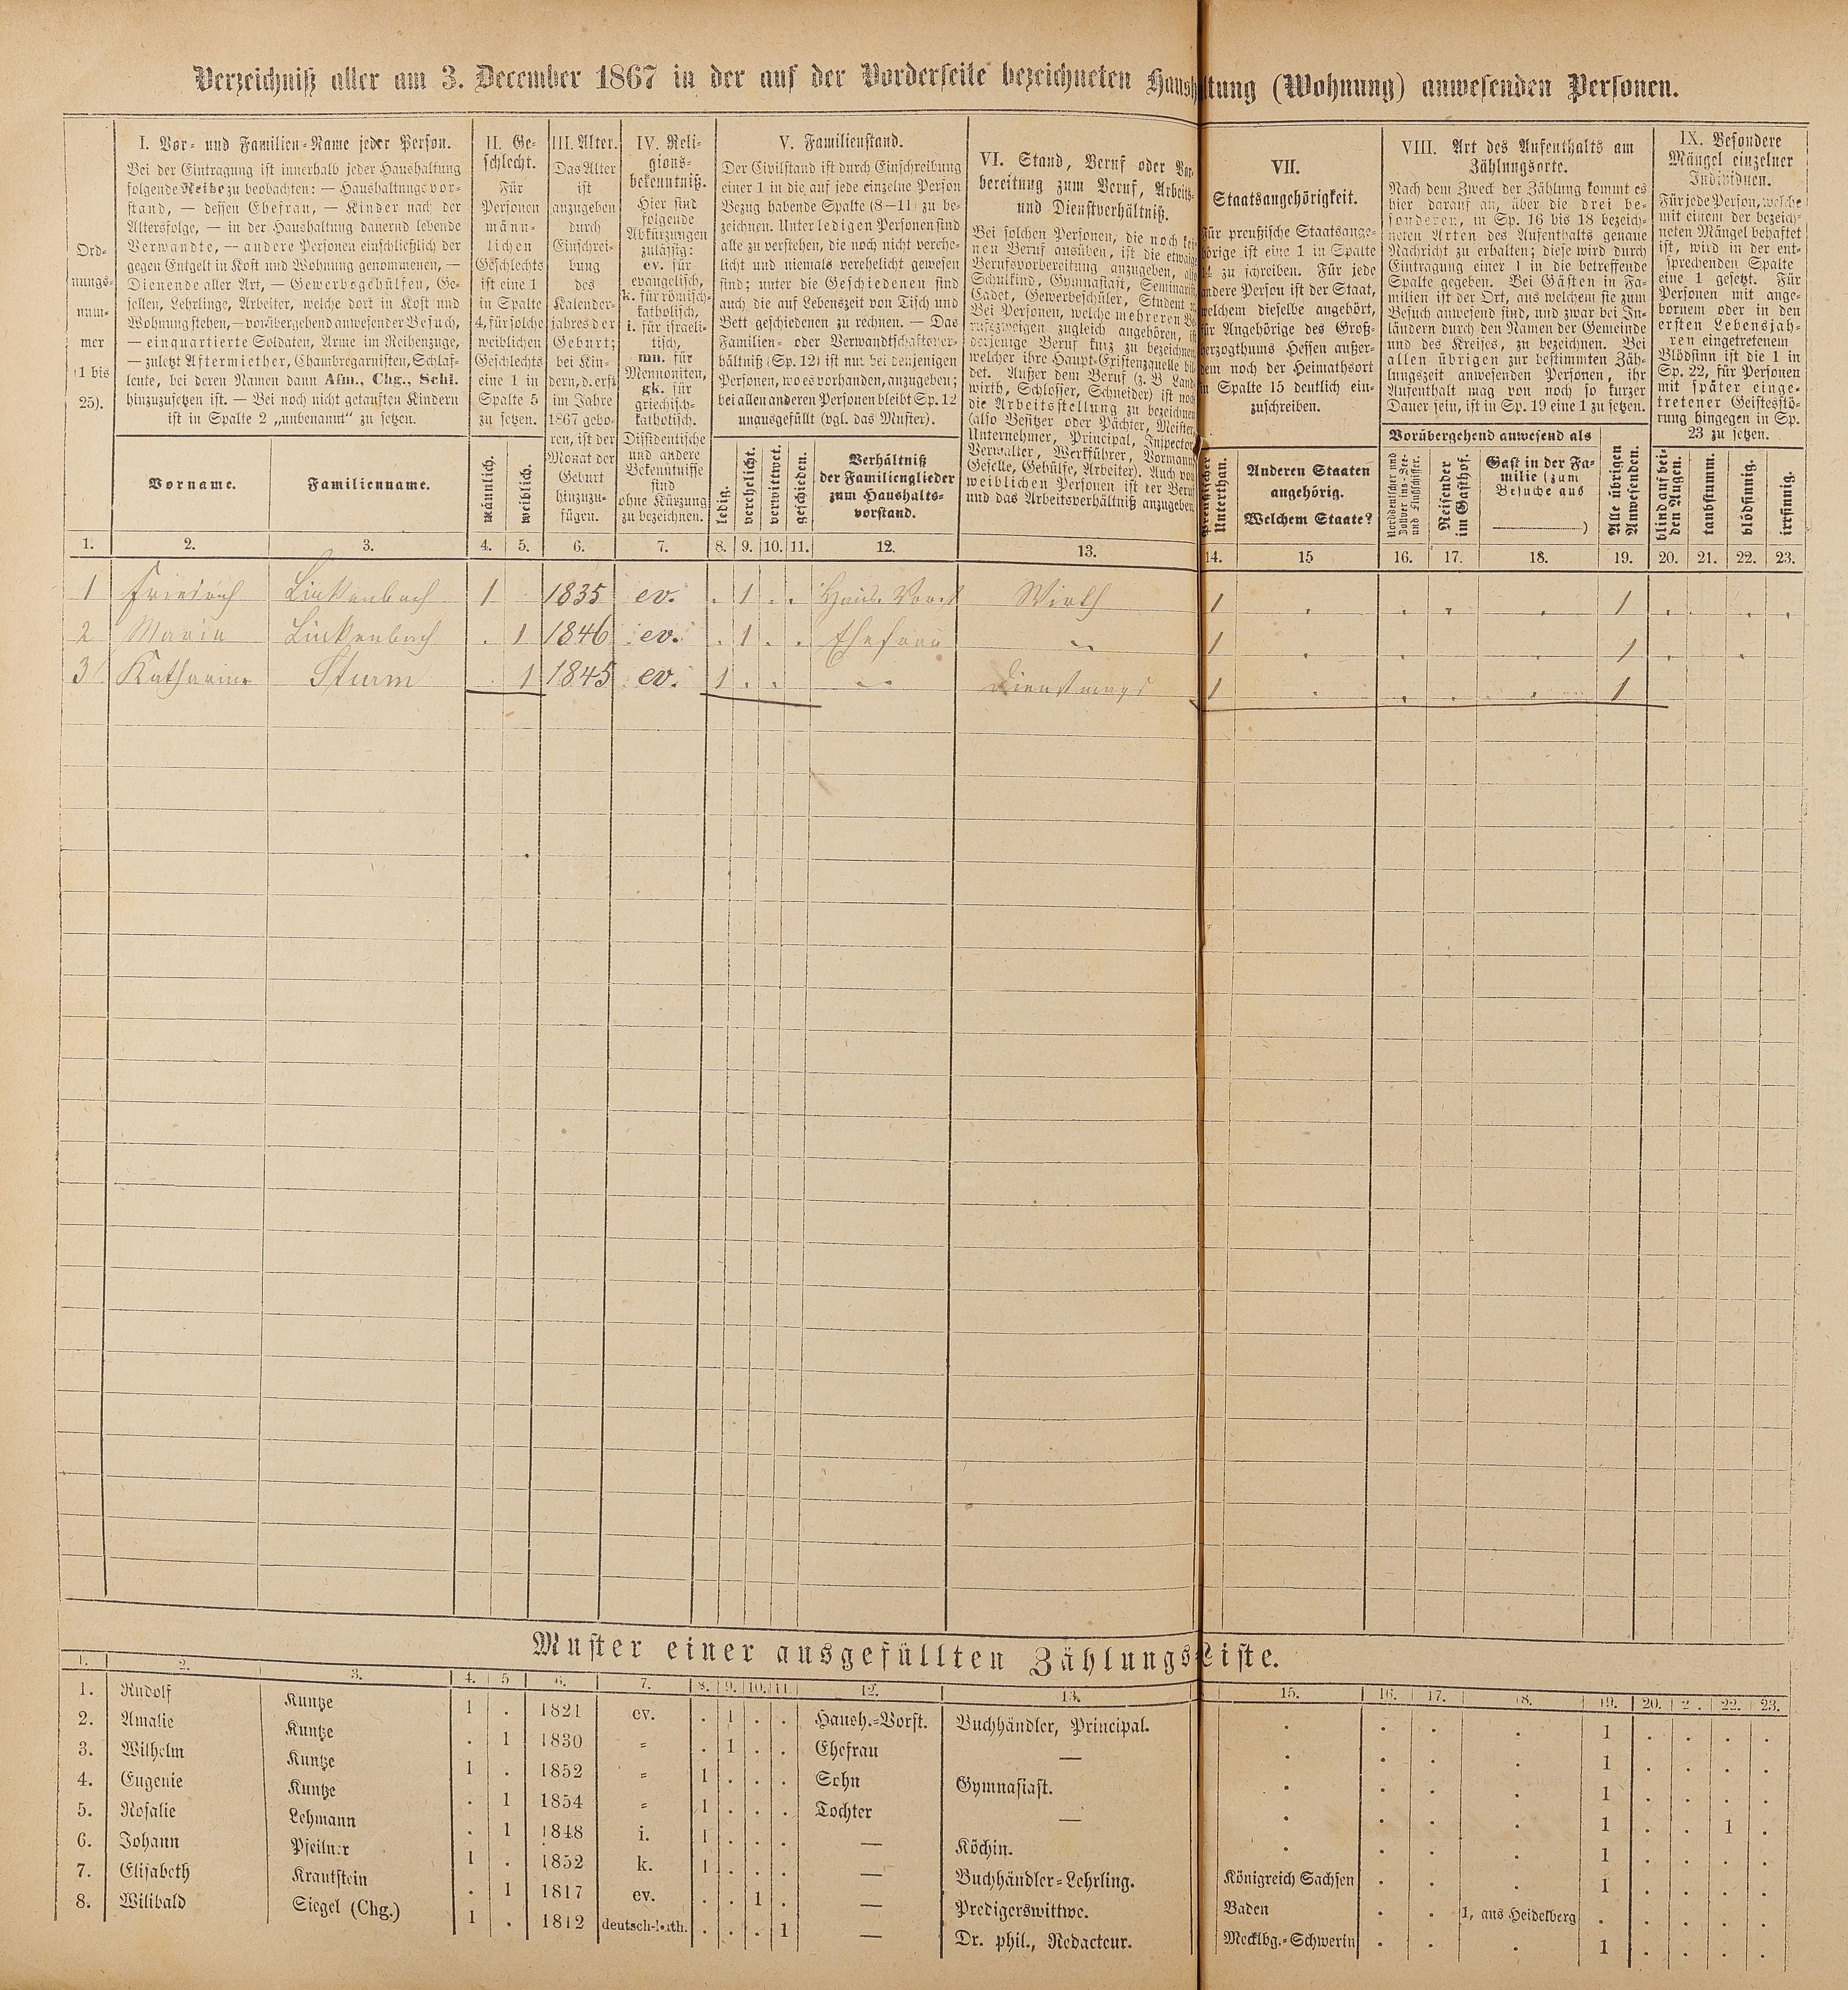 Verzeichniß aller am 3. December 1867 in der auf der Vorderseite bezeichneten Haushaltung (Wohnung) anwesenden Personen.
Ord-
nungs-
num-
mer
(1 bis
25).
I. Vor- und Familien-Name jeder Person.
Bei der Eintragung ist innerhalb jeder Haushaltung
folgende Reihe zu beobachten: — Haushaltungsvor-
stand, — dessen Ehefrau, — Kinder nach der
Altersfolge, — in der Haushaltung dauernd lebende
Verwandte, — andere Personen einschließlich der
gegen Entgelt in Kost und Wohnung genommenen, —
Dienende aller Art, — Gewerbegehülfen, Ge-
sellen, Lehrlinge, Arbeiter, welche dort in Kost und
Wohnung stehen, — vorübergehend anwesender Besuch,
— einquartierte Soldaten, Arme im Reihenzuge,
— zuletzt Aftermiether, Chambregarnisten, Schlaf-
leute, bei deren Namen dann Afm., Chg., Schl.
hinzuzusetzen ist. — Bei noch nicht getauften Kindern
ist in Spalte 2 „unbenannt“ zu setzen.
Vorname.
Familienname.
II. Ge-
schlecht.
Für
Personen
männ-
lichen
Geschlechts
ist eine 1
in Spalte
4, für solche
weiblichen
Geschlechts
eine 1 in
Spalte 5
zu setzen.
männlich.
weiblich.
III. Alter.
Das Alter
ist
anzugeben
durch
Einschrei-
bung
des
Kalender-
jahres der
Geburt;
bei Kin-
dern, d. erst
im Jahre
1867 gebo-
ren, ist der
Monat der
Geburt
hinzuzu-
fügen.
IV. Reli-
gions-
bekenntniß.
Hier sind
folgende
Abkürzungen
zulässig:
ev. für
evangelisch,
k. für römisch-
katholisch,
i. für israeli-
tisch,
mn. für
Mennoniten,
gk. für
griechisch-
katholisch.
Dissidentische
und andere
Bekenntnisse
sind
ohne Kürzung
zu bezeichnen.
V. Familienstand.
Der Civilstand ist durch Einschreibung
einer 1 in die auf jede einzelne Person
Bezug habende Spalte (8—11) zu be-
zeichnen. Unter ledigen Personen sind
alle zu verstehen, die noch nicht verehe-
licht und niemals verehelicht gewesen
sind; unter die Geschiedenen sind
auch die auf Lebenszeit von Tisch und
Bett geschiedenen zu rechnen. — Das
Familien- oder Verwandtschaftsver-
hältniß (Sp. 12) ist nur bei denjenigen
Personen, wo es vorhanden, anzugeben;
bei allen anderen Personen bleibt Sp. 12
unausgefüllt (vgl. das Muster).
ledig.
verehelicht.
verwittwet.
geschieden.
Verhältniß
der Familienglieder
zum Haushalts-
vorstand.
VI. Stand, Beruf oder Vor-
bereitung zum Beruf, Arbeits-
und Dienstverhältniß.
Bei solchen Personen, die noch kei-
nen Beruf ausüben, ist die etwaige
Berufsvorbereitung anzugeben, als
Schulkind, Gymnasiast, Seminarist,
Cadet, Gewerbeschüler, Student
Bei Personen, welche mehreren Be-
rufszweigen zugleich angehören, ist
derjenige Beruf kurz zu bezeichnen,
welcher ihre Haupt-Existenzquelle bil-
det. Außer dem Beruf (z. B. Land-
wirth, Schlosser, Schneider) ist noch
die Arbeitsstellung zu bezeichnen
(also Besitzer oder Pächter, Meister,
Unternehmer, Principal, Inspector,
Verwalter, Werkführer, Vormann,
Geselle, Gehülfe, Arbeiter). Auch von
weiblichen Personen ist der Beruf
und das Arbeitsverhältniß anzugeben.
VII.
Staatsangehörigkeit.
Für preußische Staatsange-
hörige ist eine 1 in Spalte
14 zu schreiben. Für jede
andere Person ist der Staat,
welchem dieselbe angehört,
für Angehörige des Groß-
herzogthums Hessen außer-
dem noch der Heimathsort
in Spalte 15 deutlich ein-
zuschreiben.
Preußischer
Unterthan.
Anderen Staaten
angehörig.
Welchem Staate?
VIII. Art des Aufenthalts am
Zählungsorte.
Nach dem Zweck der Zählung kommt es
hier darauf an, über die drei be-
sonderen, in Sp. 16 bis 18 bezeich-
neten Arten des Aufenthalts genaue
Nachricht zu erhalten; diese wird durch
Eintragung einer 1 in die betreffende
Spalte gegeben. Bei Gästen in Fa-
milien ist der Ort, aus welchem sie zum
Besuch anwesend sind, und zwar bei In-
ländern durch den Namen der Gemeinde
und des Kreises, zu bezeichnen. Bei
allen übrigen zur bestimmten Zäh-
lungszeit anwesenden Personen, ihr
Aufenthalt mag von noch so kurzer
Dauer sein, ist in Sp. 19 eine 1 zu setzen.
Vorübergehend anwesend als
Norddeutscher und
Zollvereins-See-
und Flußschiffer.
Reisender
im Gasthof.
Gast in der Fa-
milie (zum
Besuche aus
)
Alle übrigen
Anwesenden.
IX. Besondere
Mängel einzelner
Individuen.
Für jede Person, welche
mit einem der bezeich-
neten Mängel behaftet
ist, wird in der ent-
sprechenden Spalte
eine 1 gesetzt. Für
Personen mit ange-
bornem oder in den
ersten Lebensjah-
ren eingetretenem
Blödsinn ist die 1 in
Sp. 22, für Personen
mit später einge-
tretener Geistesstö-
rung hingegen in Sp.
23 zu setzen.
blind auf bei-
den Augen.
taubstumm.
blödsinnig.
irrsinnig.
1. 2. 3. 4. 5. 6. 7. 8. 9. 10. 11. 12. 13. 14. 15 16. 17. 18. 19. 20. 21. 22. 23.
1 Friedrich Linkenbach 1 1835 ev. . 1 . . Haus. Vorst Wirth 1 . . . . 1 . . . .
2 Maria Linkenbach . 1 1846 ev. . 1 . . Ehefrau — 1 . . . . 1 . .
3 Katharine Sturm . 1 1845 ev. 1 . . — Dienstmagd 1 . . . . 1
Muster einer ausgefüllten Zählungs-Liste.
1. 2. 3. 4. 5 6. 7. 8. 9. 10. 11. 12. 13. 15. 16. 17. 18. 19. 20. 2 . 22. 23.
1. Rudolf Kuntze 1 . 1821 ev. . 1 . . Haush.-Vorst. Buchhändler, Principal. . . . . 1 . . . .
2. Amalie Kuntze . 1 1830 „ . 1 . . Ehefrau — . . . . 1 . . . .
3. Wilhelm Kuntze 1 . 1852 „ 1 . . . Sohn Gymnasiast. . . . . 1 . . . .
4. Eugenie Kuntze . 1 1854 „ 1 . . . Tochter — . . . . 1 . . 1 .
5. Rosalie Lehmann . 1 1848 i. 1 . . . — Köchin. . . . . 1 . . . .
6. Johann Pfeilner 1 . 1852 k. 1 . . . — Buchhändler-Lehrling. Königreich Sachsen . . . 1 . . . .
7. Elisabeth Krautstein . 1 1817 ev. . . 1 . — Predigerswittwe. Baden . . 1, aus Heidelberg . . . . .
8. Wilibald Siegel (Chg.) 1 . 1812 deutsch-kath. . . . 1 — Dr. phil., Redacteur. Mecklbg.-Schwerin . . . 1 . . . .